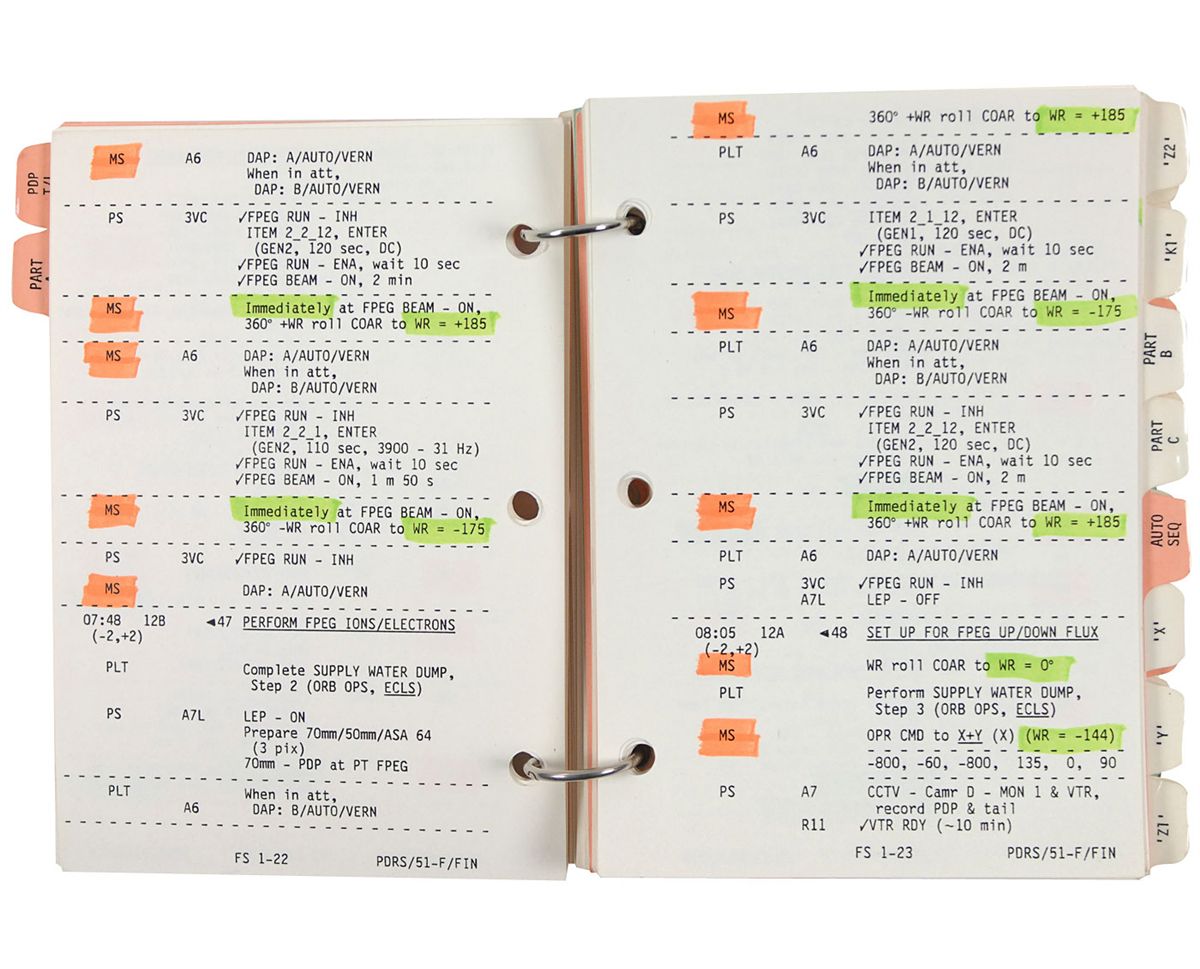 PDP
PART
MS A6 DAP: A/AUTO/VERN
When in att,
DAP: B/AUTO/VERN
PS 3VC ✓FPEG RUN - INH
ITEM 2_2_12, ENTER
(GEN2, 120 sec, DC)
✓FPEG RUN - ENA, wait 10 sec
✓FPEG BEAM - ON, 2 min
MS Immediately at FPEG BEAM - ON,
360° +WR roll COAR to WR = +185
MS A6 DAP: A/AUTO/VERN
When in att,
DAP: B/AUTO/VERN
PS 3VC ✓FPEG RUN - INH
ITEM 2_2_1, ENTER
(GEN2, 110 sec, 3900 - 31 Hz)
✓FPEG RUN - ENA, wait 10 sec
✓FPEG BEAM - ON, 1 m 50 s
MS Immediately at FPEG BEAM - ON,
360° -WR roll COAR to WR = -175
PS 3VC ✓FPEG RUN - INH
MS DAP: A/AUTO/VERN
07:48 12B ◄47 PERFORM FPEG IONS/ELECTRONS
(-2,+2)
PLT Complete SUPPLY WATER DUMP,
Step 2 (ORB OPS, ECLS)
PS A7L LEP - ON
Prepare 70mm/50mm/ASA 64
(3 pix)
70mm - PDP at PT FPEG
PLT When in att,
A6 DAP: B/AUTO/VERN
FS 1-22 PDRS/51-F/FIN
MS 360° +WR roll COAR to WR = +185
PLT A6 DAP: A/AUTO/VERN
When in att,
DAP: B/AUTO/VERN
PS 3VC ITEM 2_1_12, ENTER
(GEN1, 120 sec, DC)
✓FPEG RUN - ENA, wait 10 sec
✓FPEG BEAM - ON, 2 m
MS Immediately at FPEG BEAM - ON,
360° -WR roll COAR to WR = -175
PLT A6 DAP: A/AUTO/VERN
When in att,
DAP: B/AUTO/VERN
PS 3VC ✓FPEG RUN - INH
ITEM 2_2_12, ENTER
(GEN2, 120 sec, DC)
✓FPEG RUN - ENA, wait 10 sec
✓FPEG BEAM - ON, 2 m
MS Immediately at FPEG BEAM - ON,
360° +WR roll COAR to WR = +185
PLT A6 DAP: A/AUTO/VERN
PS 3VC ✓FPEG RUN - INH
A7L LEP - OFF
08:05 12A ◄48 SET UP FOR FPEG UP/DOWN FLUX
(-2,+2)
MS WR roll COAR to WR = 0°
PLT Perform SUPPLY WATER DUMP,
Step 3 (ORB OPS, ECLS)
MS OPR CMD to X+Y (X) (WR = -144)
-800, -60, -800, 135, 0, 90
PS A7 CCTV - Camr D - MON 1 & VTR,
record PDP & tail
R11 ✓VTR RDY (~10 min)
FS 1-23 PDRS/51-F/FIN
'Z2'
'K1'
PART
B
PART
C
AUTO
SEQ
'X'
'Y'
'Z1'